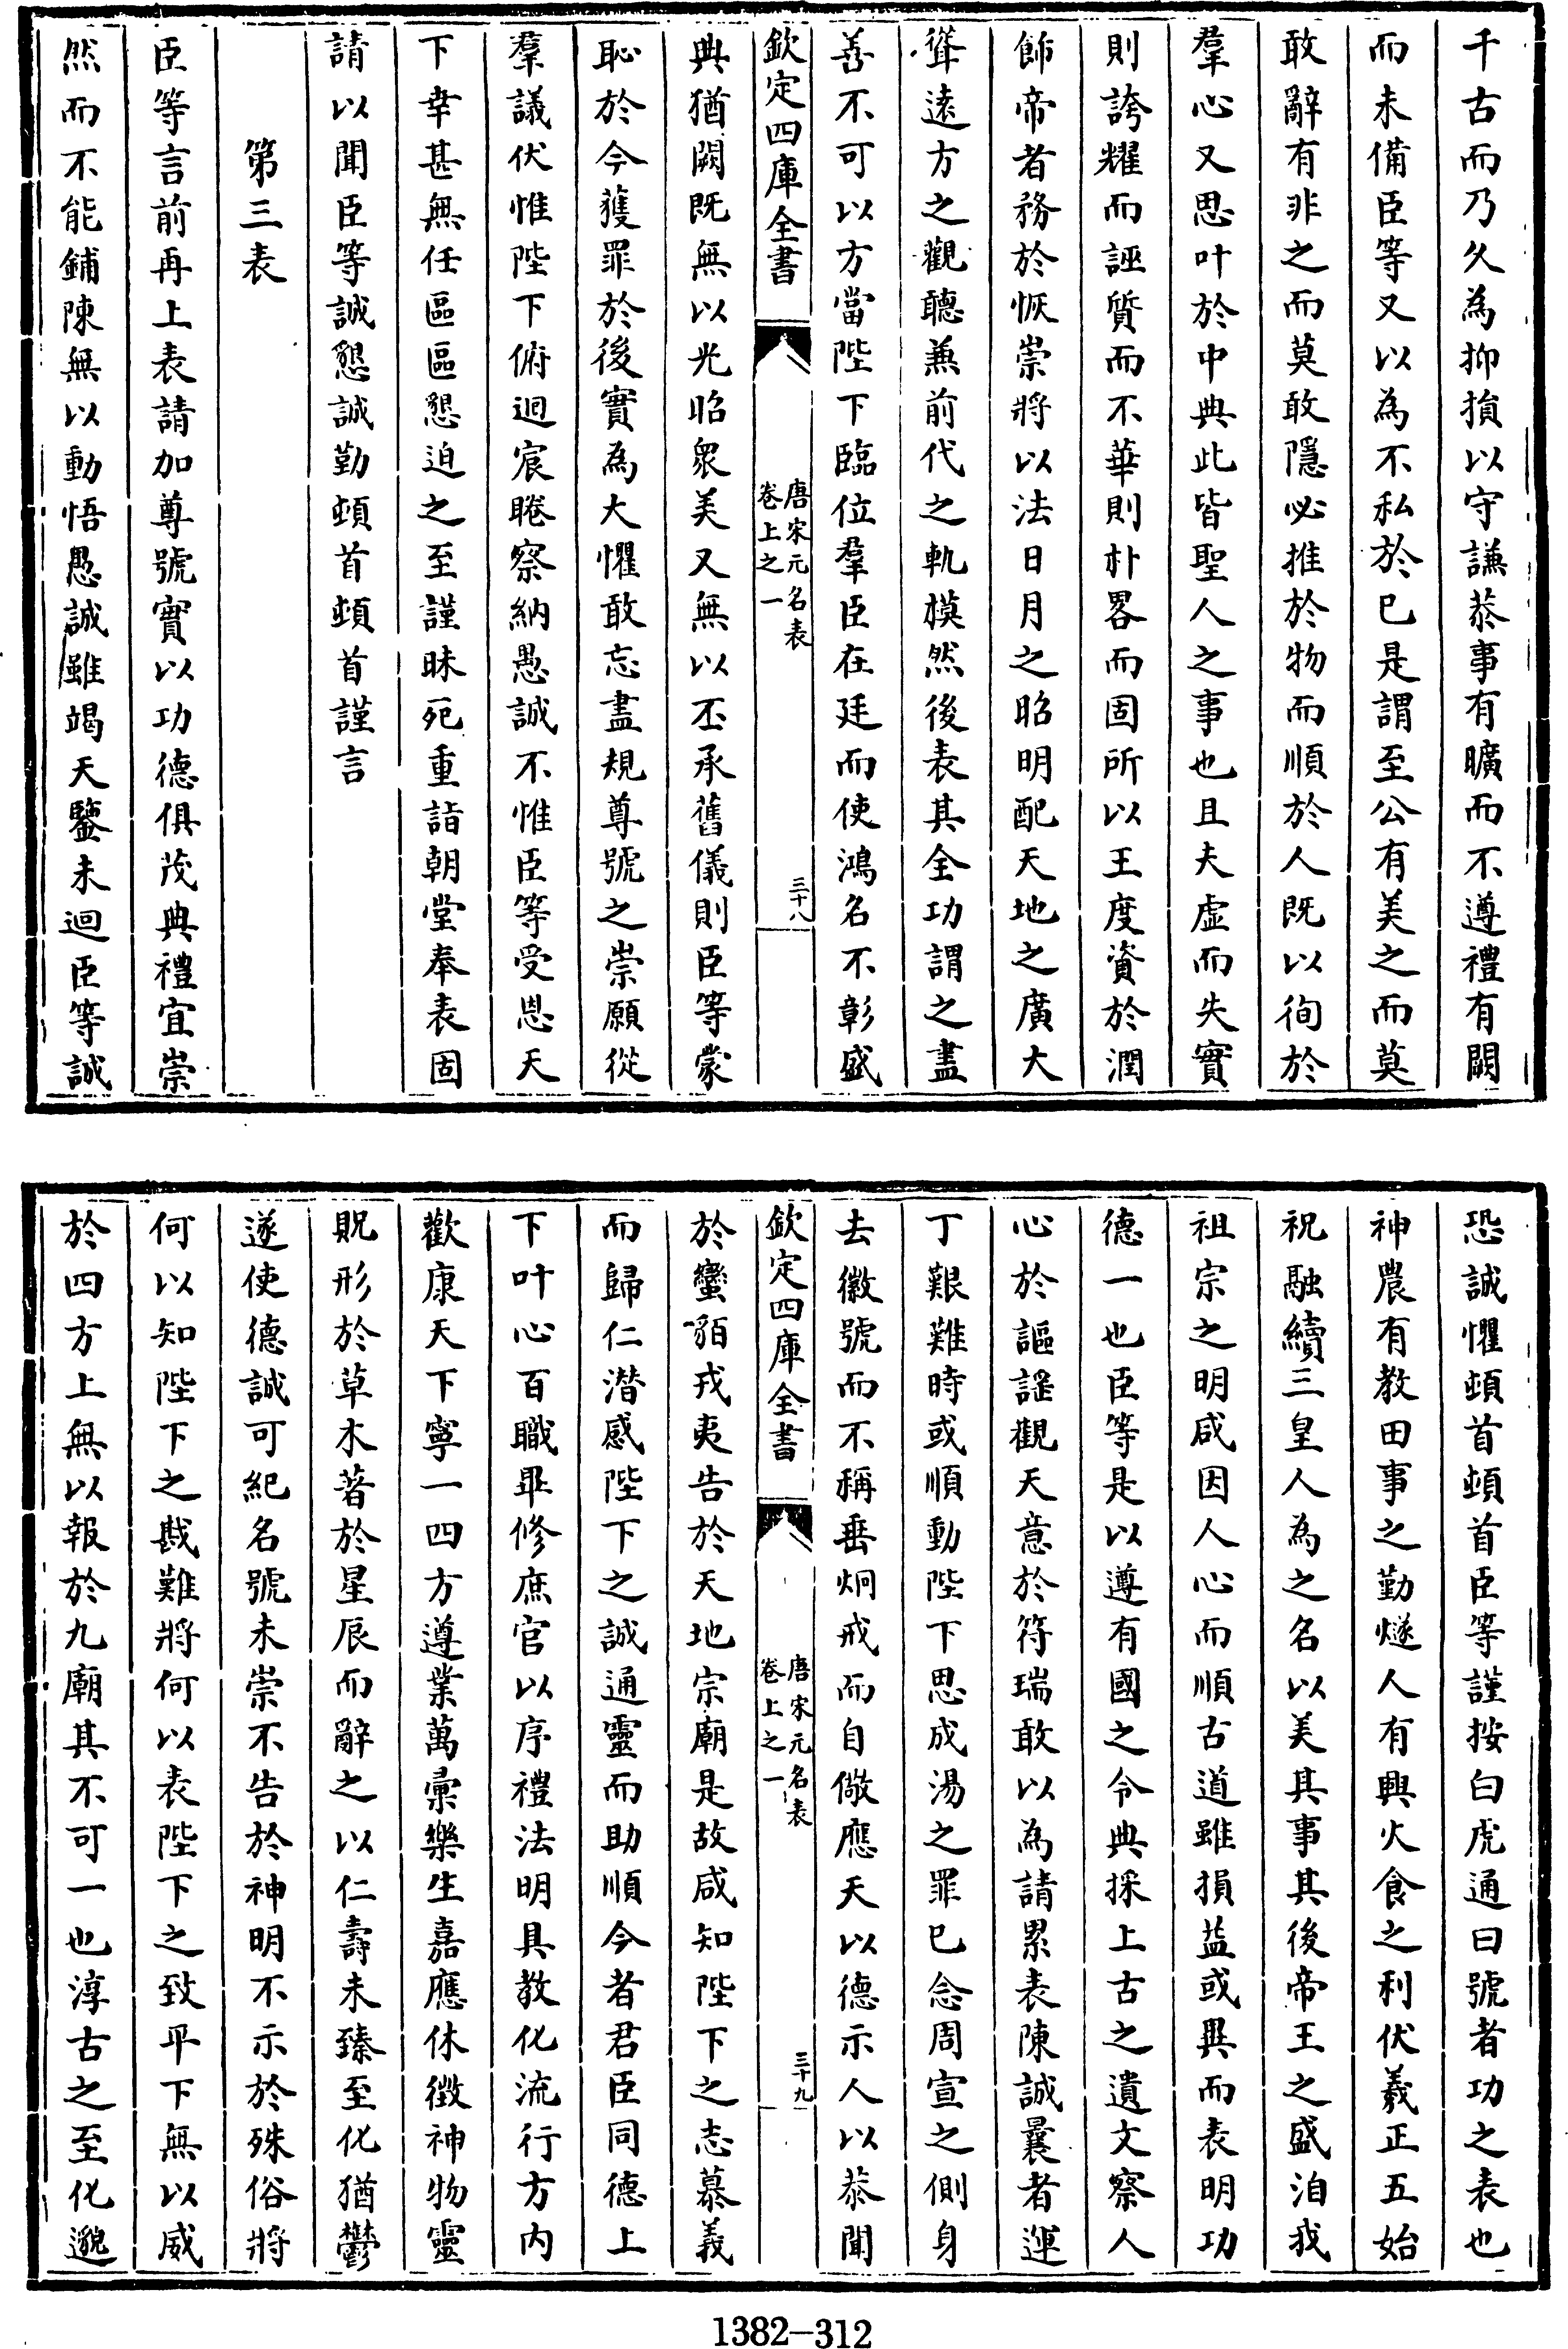 千古而乃久為抑損以守謙恭事有曠而不遵禮有闕
而未備臣等又以為不私於已是謂至公有美之而莫
敢辭有非之而莫敢隱必推於物而順於人既以徇於
羣心又思叶於中典此皆聖人之事也且夫虛而失實
則誇耀而誣質而不華則朴畧而固所以王度資於潤
飾帝者務於恢崇將以法日月之昭明配天地之廣大
聳遠方之觀聽兼前代之軌模然後表其全功謂之盡
善不可以方當陛下臨位羣臣在廷而使鴻名不彰盛
欽定四庫全書
唐宋元名表
卷上之一
三十八
典猶闕既無以光昭衆美又無以丕承舊儀則臣等蒙
恥於今獲罪於後實為大懼敢忘盡規尊號之崇願從
羣議伏惟陛下俯迴宸睠察納愚誠不惟臣等受恩天
下幸甚無任區區懇迫之至謹昧死重詣朝堂奉表固
請以聞臣等誠懇誠勤頓首頓首謹言
第三表
臣等言前再上表請加尊號實以功德俱茂典禮宜崇
然而不能鋪陳無以動悟愚誠雖竭天鑒未迴臣等誠
恐誠懼頓首頓首臣等謹按白虎通曰號者功之表也
神農有教田事之勤燧人有興火食之利伏羲正五始
祝融續三皇人為之名以美其事其後帝王之盛洎我
祖宗之明咸因人心而順古道雖損益或異而表明功
德一也臣等是以遵有國之令典採上古之遺文察人
心於謳謠觀天意於符瑞敢以為請累表陳誠曩者運
丁艱難時或順動陛下思成湯之罪已念周宣之側身
去徽號而不稱垂炯戒而自儆應天以德示人以恭聞
欽定四庫全書
唐宋元名表
卷上之一
三十九
於蠻貊戎夷告於天地宗廟是故咸知陛下之志慕義
而歸仁潛感陛下之誠通靈而助順今者君臣同德上
下叶心百職畢修庶官以序禮法明具教化流行方內
歡康天下寧一四方遵業萬彙樂生嘉應休徵神物靈
貺形於草木著於星辰而辭之以仁壽未臻至化猶鬱
遂使德誠可紀名號未崇不告於神明不示於殊俗將
何以知陛下之戡難將何以表陛下之致平下無以威
於四方上無以報於九廟其不可一也淳古之至化邈
1382—312